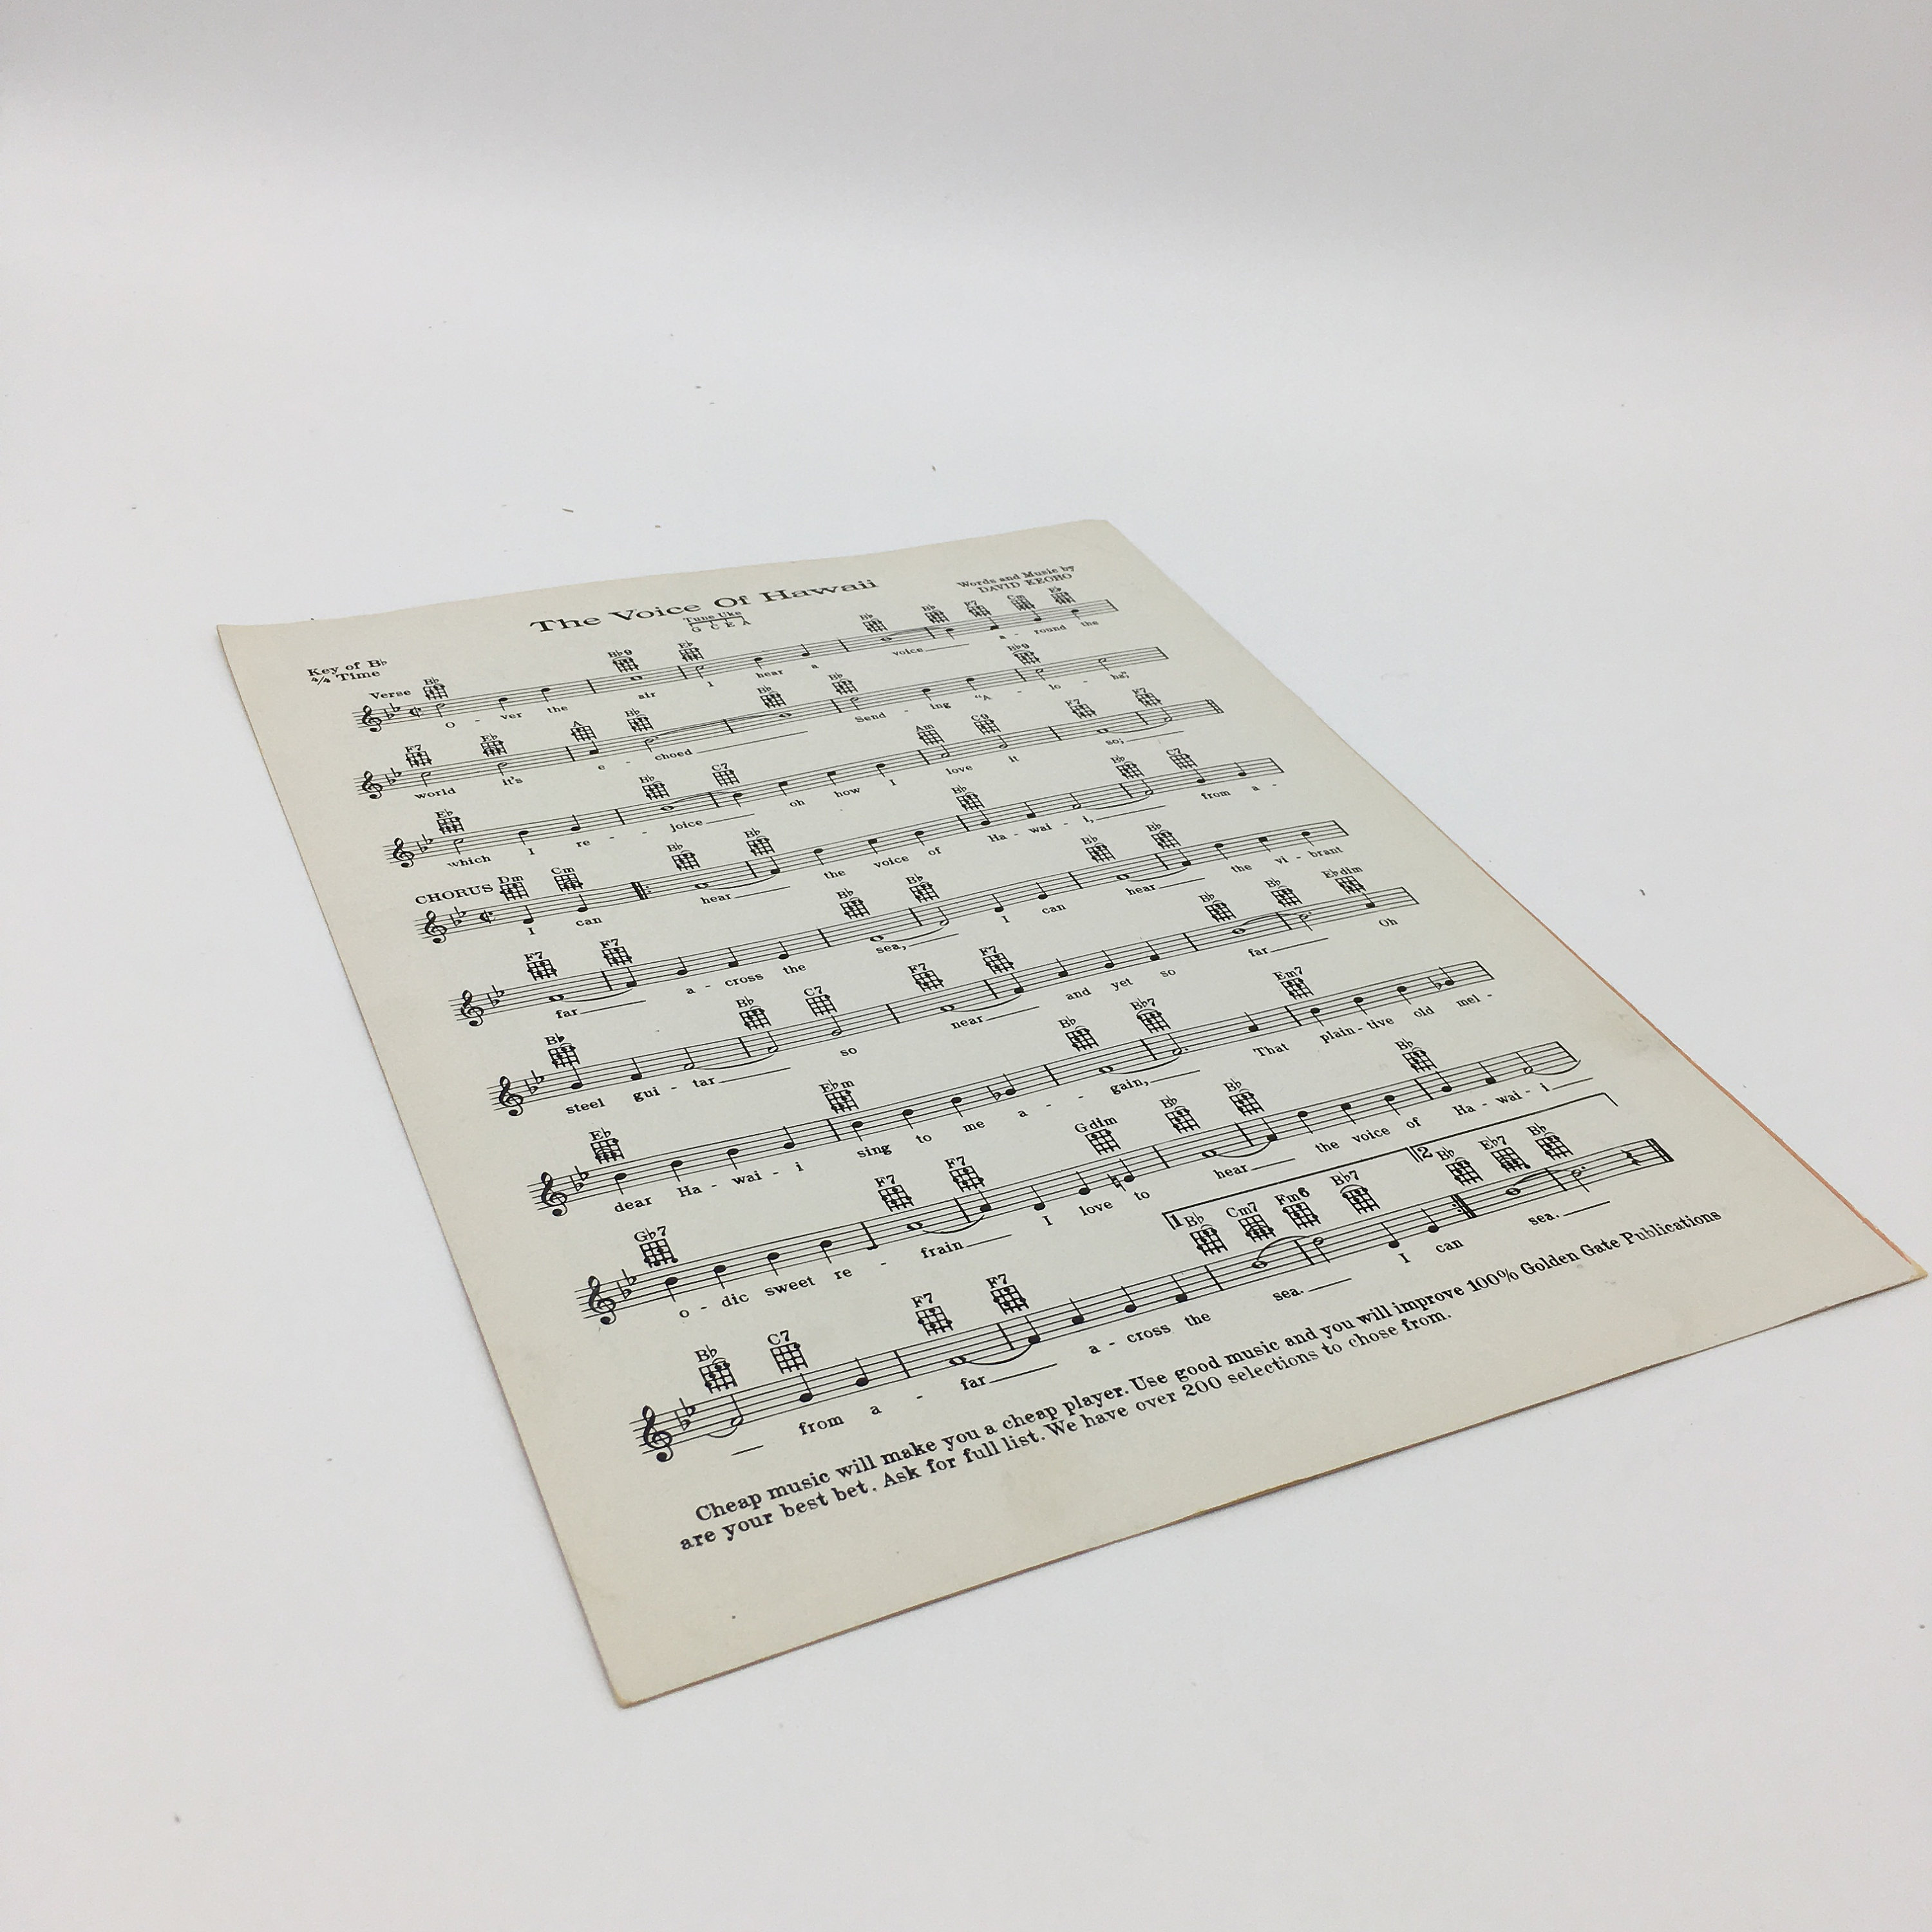 The Voice Of Hawaii
Words and Music by
DAVID KEOHO
Tune Uke
G C E A
Key of B♭
4/4 Time
Verse
B♭ B♭9 E♭ B♭ B♭ F7 Cm E♭
O - ver the air I hear a voice a - round the
F7 E♭ A B♭ B♭ B♭ B♭9
world it's e - choed Send - ing "A - lo - ha"
E♭ B♭ C7 Am C9 F7 F7
which I re - - joice oh how I love it so;
CHORUS Dm Cm B♭ B♭ B♭ B♭ C7
I can hear the voice of Ha - wai - i, from a -
F7 F7 B♭ B♭ B♭ B♭
far a - cross the sea, I can hear the vi - brant
B♭ B♭ C7 F7 F7 B♭ B♭ E♭dim
steel gui - tar so near and yet so far Oh
E♭ E♭m B♭ B♭7 Em7
dear Ha - wai - i sing to me a - - gain, That plain - tive old mel -
G♭7 F7 F7 Gdim B♭ B♭ B♭
o - dic sweet re - frain I love to hear the voice of Ha - wai - i
B♭ C7 F7 F7 1 B♭ Cm7 Fm6 B♭7 2 B♭ E♭7 B♭
from a - far a - cross the sea. I can sea.
Cheap music will make you a cheap player. Use good music and you will improve 100% Golden Gate Publications
are your best bet. Ask for full list. We have over 200 selections to chose from.